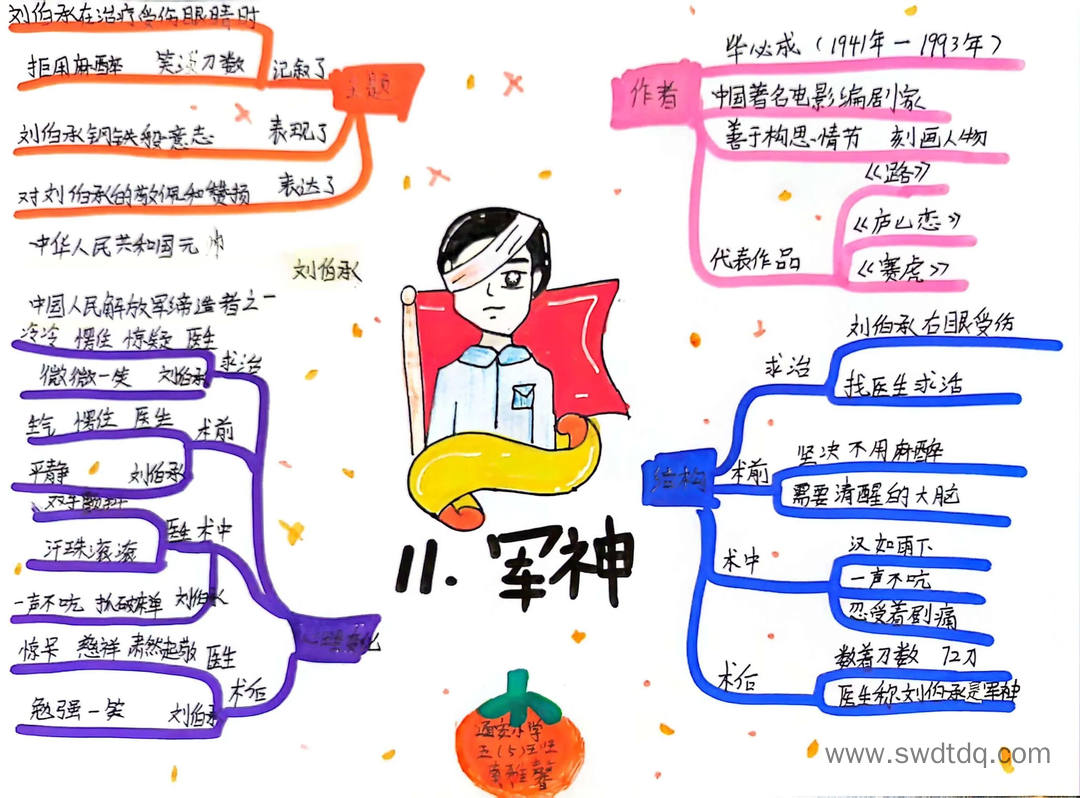 刘伯承在治疗受伤眼睛时
拒用麻醉 笑谈刀数
记叙了
主题
刘伯承钢铁般意志
表现了
对刘伯承的敬佩和赞扬
表达了
中华人民共和国元帅
刘伯承
中国人民解放军缔造者之一
作者
毕必成（1941年－1993年）
中国著名电影编剧家
善于构思情节 刻画人物
代表作品
《路》
《庐山恋》
《赛虎》
冷冷 愣住 惊疑 医生
微微一笑 刘伯承
求治
生气 愣住 医生
平静 刘伯承
术前
双手颤抖
汗珠滚滚
医生
术中
一声不吭 抓破床单 刘伯承
惊呆 慈祥 肃然起敬 医生
勉强一笑 刘伯承
术后
变化
11.军神
结构
求治
刘伯承右眼受伤
找医生求治
术前
坚决不用麻醉
需要清醒的大脑
术中
汉如雨下
一声不吭
忍受着剧痛
术后
数着刀数 72刀
医生称刘伯承是军神
小学
五（5）班
www.swdtdq.com